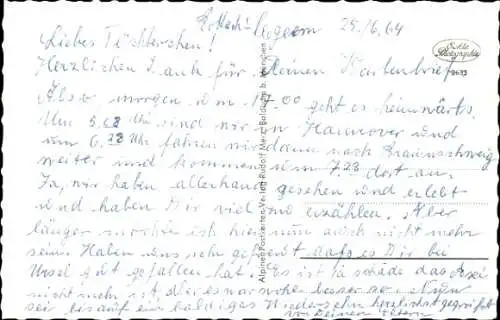 Rottach-Egern 25./6.64
Liebes Töchterchen!
Herzlichen Dank für Deinen Kartenbrief
Also morgen um 17 00 geht es heimwärts.
Um 5.08 Uhr sind wir in Hannover und
um 6. Uhr fahren wir dann nach Braunschweig
weiter und kommen um 7 23 dort an.
Ja, wir haben allerhand gesehen und erlebt
und haben Dir viel zu erzählen. Aber
länger möchte ich hier nun auch nicht mehr
sein. Haben uns sehr gefreut daß es Dir bei
Ursel gut gefallen hat. Es ist ja schade das
nicht mehr ist aber es war wohl besser so. Nun
sei bis auf ein baldiges Wiedersehn herzlichst gegrüßt
von Deinen Eltern
Echte Photographie
Alpiner Postkarten-Verlag Rudolf b. München